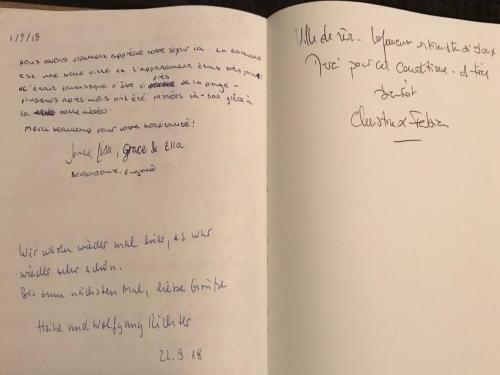 1/9/18
Nous avons vraiment apprécié votre séjour ici. La
est une belle ville et l'appartement était très joli.
C'était fantastique d'être si près de la plage -
plusieurs après-midis ont été passées là-bas grâce à
la belle météo.
Merci beaucoup pour votre hospitalité!
James, Lisa, Grace & Ella
England
Wir waren wieder mal hier, es war
wieder sehr schön.
Bis zum nächsten Mal, liebe Grüße
Heike und Wolfgang Richter
22.9.18
Ville de
pour cet
bientôt
Christine &